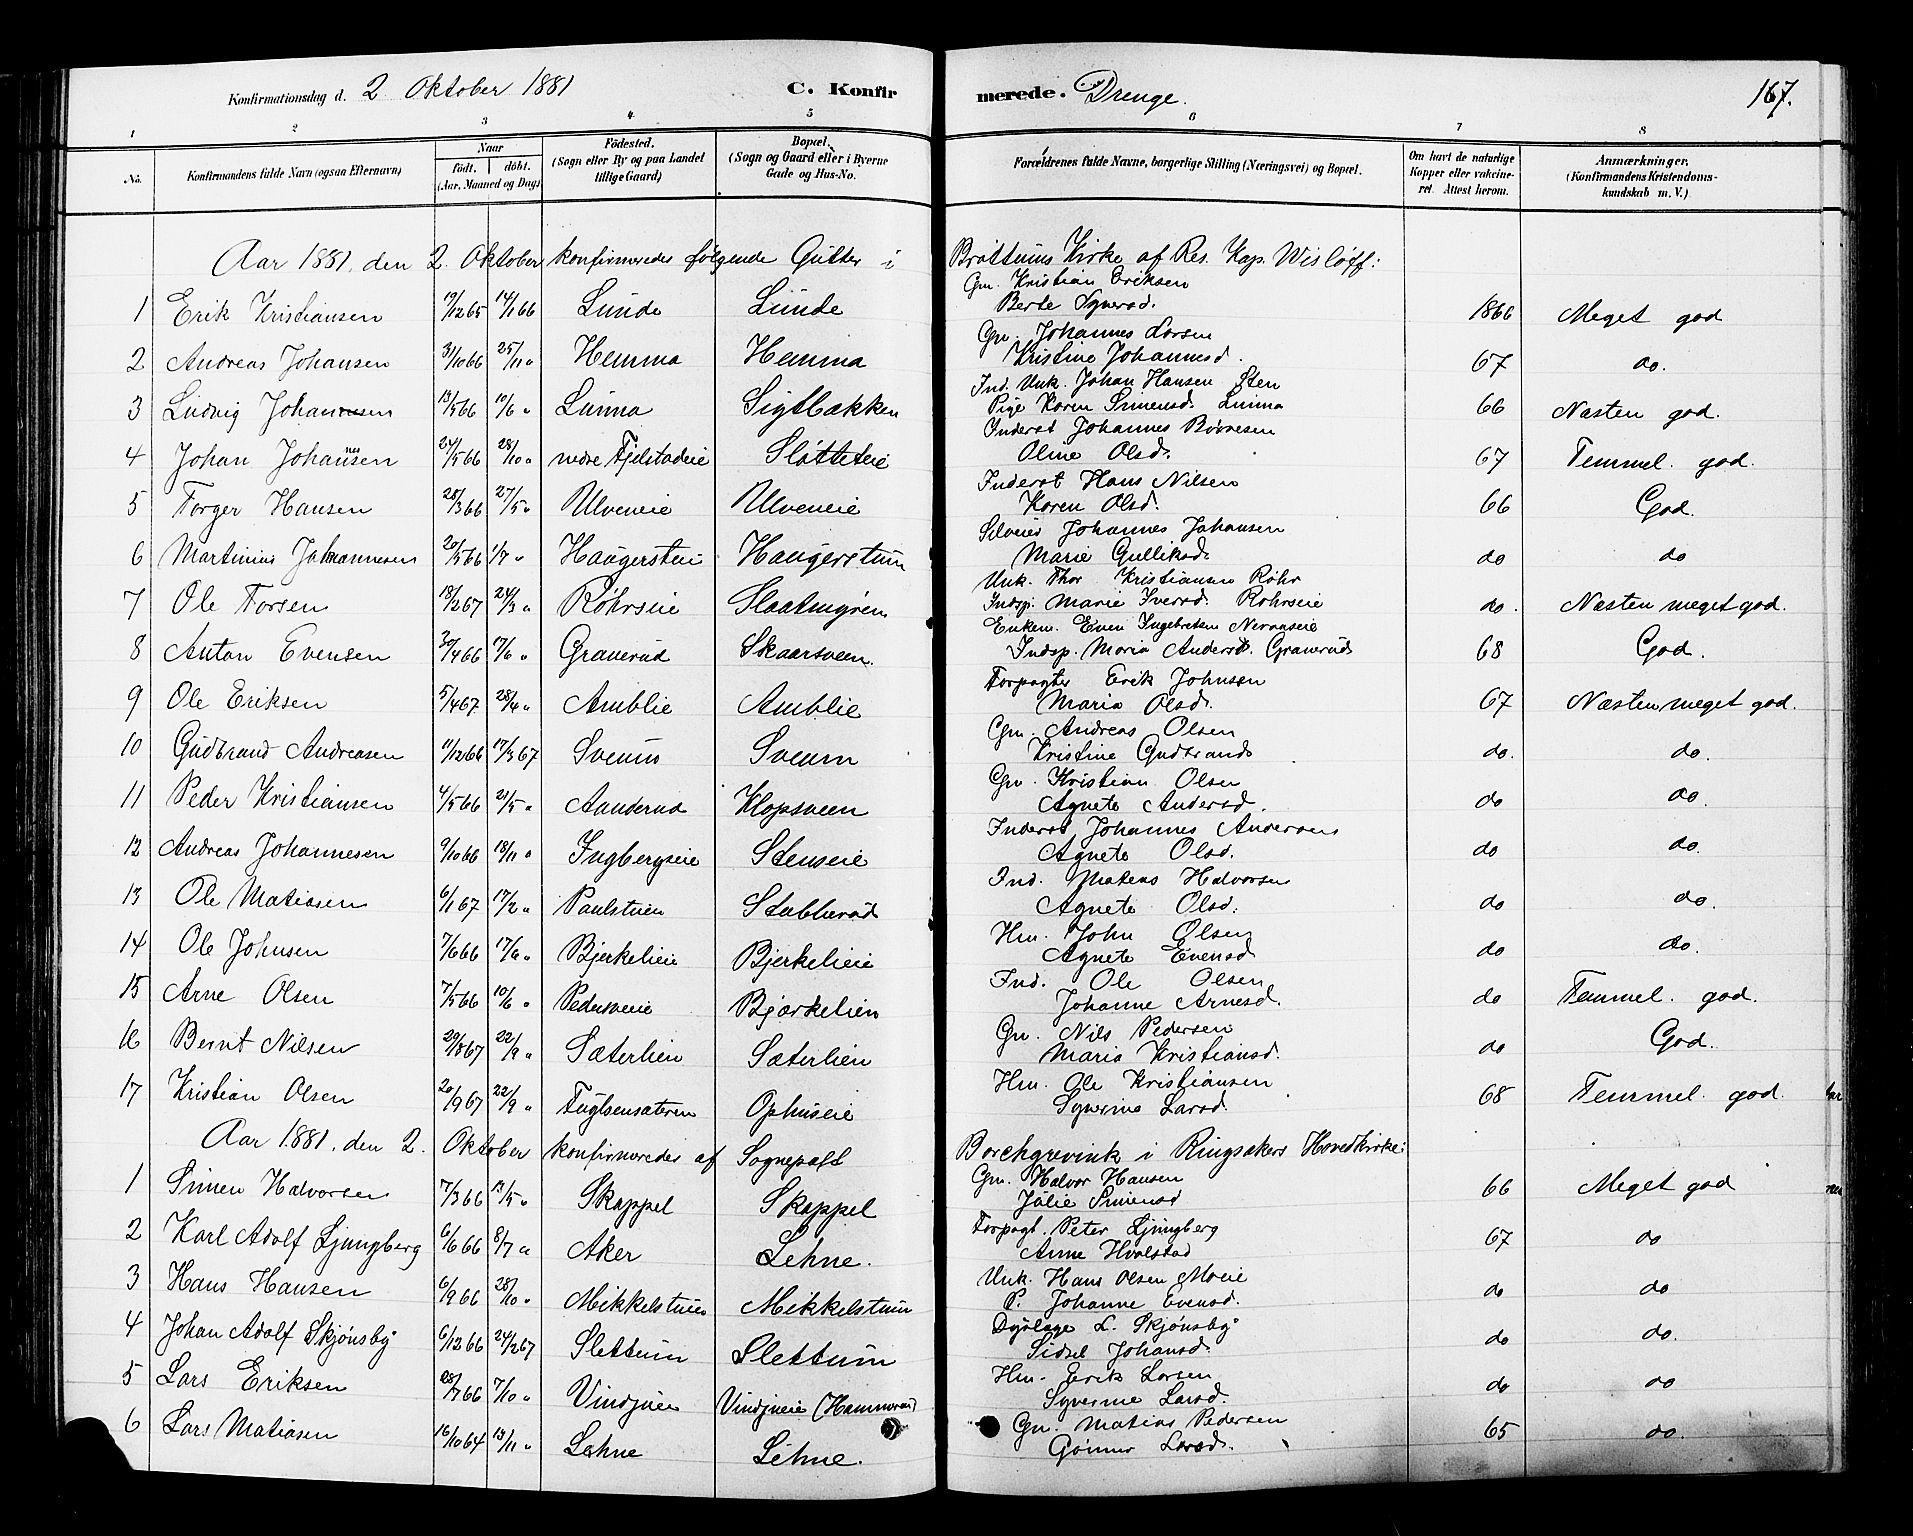 Konfirmationsdag d. 2 Oktober 1881 C. Konfirmerede. Drenge. 167.
1 2 3 4 5 6 7 8
No. Konfirmandens fulde Navn (ogsaa Efternavn) Naar födt. döbt. (Aar, Maaned og Dag) Födested. (Sogn eller By og paa Landet tillige Gaard) Bopæl. (Sogn og Gaard eller i Byerne Gade og Hus-No. Forældrenes fulde Navne, borgerlige Stilling (Næringsvei) og Bopæl. Om havt de naturlige Kopper eller vakcineret. Attest herom. Anmærkninger. (Konfirmandens Kristendomskundskab m. V.)
Aar 1881, den 2. Oktober konfirmeredes følgende Gutter i Brøttums Kirke af Res. Kap. Wisløff:
1 Erik Kristiansen 19/12 65 14/1 66 Lunde Lunde Gm. Kristian Eriksen
Berte Syversd. 1866 Meget god
2 Andreas Johansen 31/10 66 25/11 " Hemma Hemma Gm. Johannes Larsen
Kristine Johannesd. 67 do.
3 Ludvig Johansen 13/5 66 10/6 " Lunna Sigtbakken Ind. Unk. Johan Hansen Sten
Pige Karen Simensd. Lunna 66 Næsten god.
4 Johan Johannesen 24/5 66 28/10 " nedre Fjelstadeie Slåtteeie Inderst Johannes
Oline Olsd. 67 Temmel. god.
5 Torger Hansen 28/3 66 27/5 " Ulveneie Ulveneie Inderst Hans Nilsen
Karen Olsd. 66 God.
6 Martinus Johannesen 20/5 66 1/7 " Haugerstuei Haugerstuen Selveier Johannes Johansen
Marie Gulliksd. do do
7 Ole Torsen 18/2 67 24/3 " Röhrseie Slaatmyren Unk. Thor Kristiansen Röhr
Indsp. Marie Iversd. Röhrseie do. Næsten meget god.
8 Anton Evensen 30/4 66 17/6 " Graverud Skaarsveen. Enkem. Even Ingebretsen
Indsp. Maria Andersd. Graverud 68 God.
9 Ole Eriksen 5/4 67 28/4 " Amblie Amblie Forpagter Erik Johnsen
Maria Olsd. 67 Næsten meget god.
10 Gudbrand Andreasen 11/12 66 17/3 67 Sveum Sveum Gm. Andreas Olsen
Kristine Gudbrandsd. do. do.
11 Peder Kristiansen 4/5 66 21/5 " Aanderud Klopsveen Gm. Kristian Olsen
Agnete Andersd. do do.
12 Andreas Johannesen 9/10 66 18/11 " Ingbergseie Stenseie Inderst Johannes Andersen
Agnete Olsd. do do.
13 Ole Matiasen 6/1 67 17/2 " Paulstuen Stabberud Ind. Matias Halvorsen
Agnete Olsd. do do.
14 Ole Johnsen 7/6 66 17/6 " Bjerkelieie Bjerkelieie Hm. John Olsen
Agnete Evensd do do.
15 Arne Olsen 7/5 66 10/6 " Pedersveie Bjørkelien Ind. Ole Olsen
Johanne Arnesd. do Temmel. god.
16 Bernt Nilsen 29/8 67 22/9 " Sæterlien Sæterlien Gm. Nils Pedersen
Maria Kristiansd. do God.
17 Kristian Olsen 20/9 67 22/9 " Fuglsensæteren Ophuseie Hm. Ole Kristiansen
Syverine Larsd. 68 Temmel. god.
Aar 1881, den 2. Oktober konfirmeredes af Sognepræst Borchgrevink i Ringsakers Hovedkirke:
1 Simen Halvorsen 7/3 66 13/5 " Skappel Skappel Gm. Halvor Hansen
Julie Simensd 66 Meget god
2 Karl Adolf Ljungberg 6/6 66 8/7 " Aker Lehne. Forpagt. Peter Ljungberg
Anne Hvalstad 67 do
3 Hans Hansen 6/9 66 28/10 " Mikkelstuen Mikkelstuen Unk. Hans Olsen Moeie
P. Johanne Evensd. do do
4 Johan Adolf Skjønsby 6/12 66 24/2 67 Slettum Slettum Dyrlæge L. Skjønsby
Sidsel Johansd. do do.
5 Lars Eriksen 28/7 66 7/10 " Vindjuei Vindjueie (Hammerud) Hm. Erik Larsen
Syverine Larsd. do do
6 Lars Matiasen 16/10 64 13/11 " Lehne Lehne. Gm. Matias Pedersen
Gønner Larsd. 65 do.